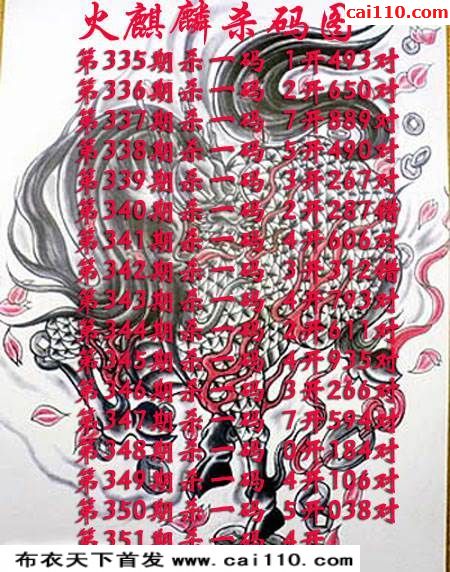 cai110.com
火麒麟杀码图
第335期杀一码 1开493对
第336期杀一码 2开650对
第337期杀一码 7开889对
第338期杀一码 5开490对
第339期杀一码 3开267对
第340期杀一码 2开287错
第341期杀一码 4开606对
第342期杀一码 3开312错
第343期杀一码 4开793对
第344期杀一码 2开611对
第345期杀一码 4开935对
第346期杀一码 3开266对
第347期杀一码 7开594对
第348期杀一码 0开184对
第349期杀一码 4开106对
第350期杀一码 5开038对
第351期杀一码 4开
布衣天下首发 www.cai110.com